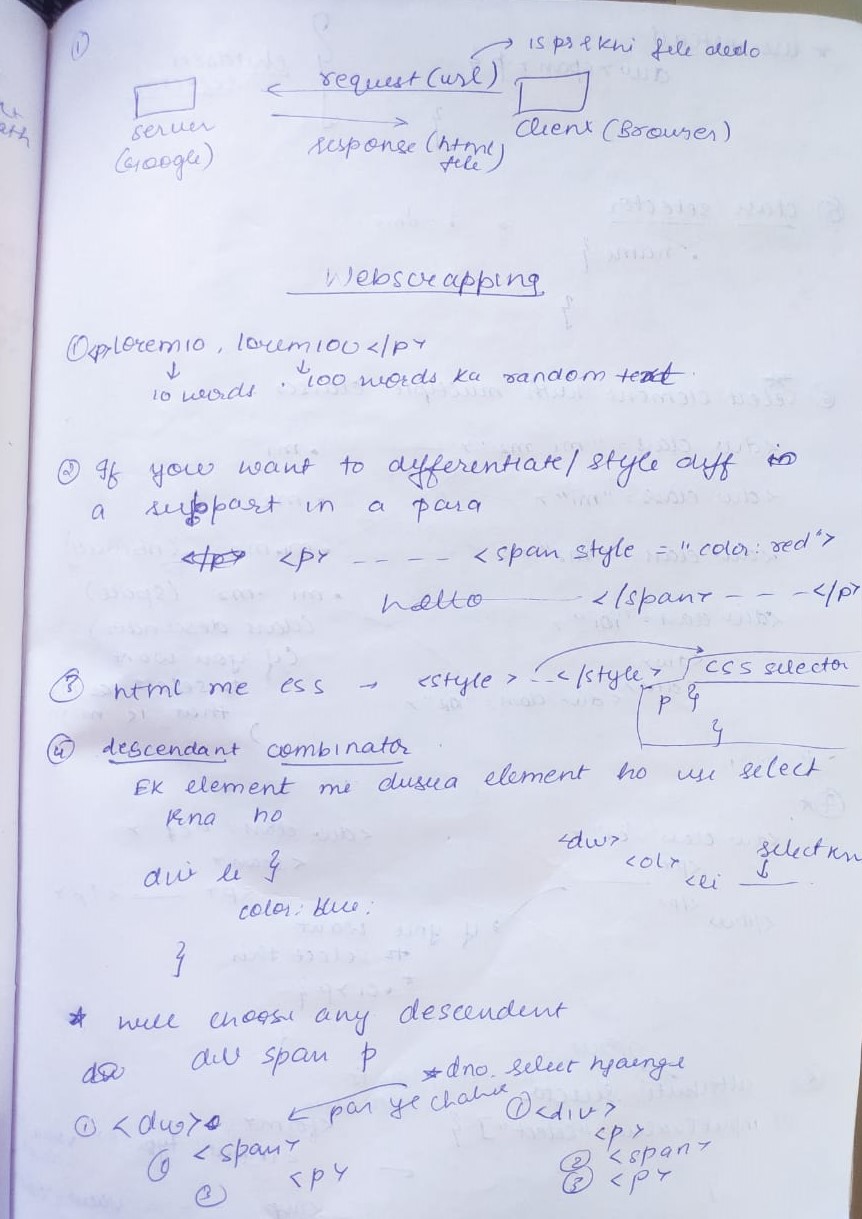 ①
request (url) → is pr rkhi file dedo
server
(Google)
response (html
file)
Client (Browser)
Webscrapping
① <p>lorem10, lorem100</p>
↓ ↓
10 words. 100 words ka random text.
② If you want to differentiate/style diff
a subpart in a para
<p> ---- <span style = "color: red">
hello </span> - - - </p>
③ html me css → <style> --- </style> CSS selector
p {
}
④ descendant combinator
EK element me dusra element ho use select
krna ho
<div>
<ol>
<li
select krn
↓
div li {
color: blue;
}
* will choose any descendent
div span p
* dno. select hjaenge
par ye chahie
① <div>
② <span>
③ <p>
① <div>
<p>
② <span>
③ <p>